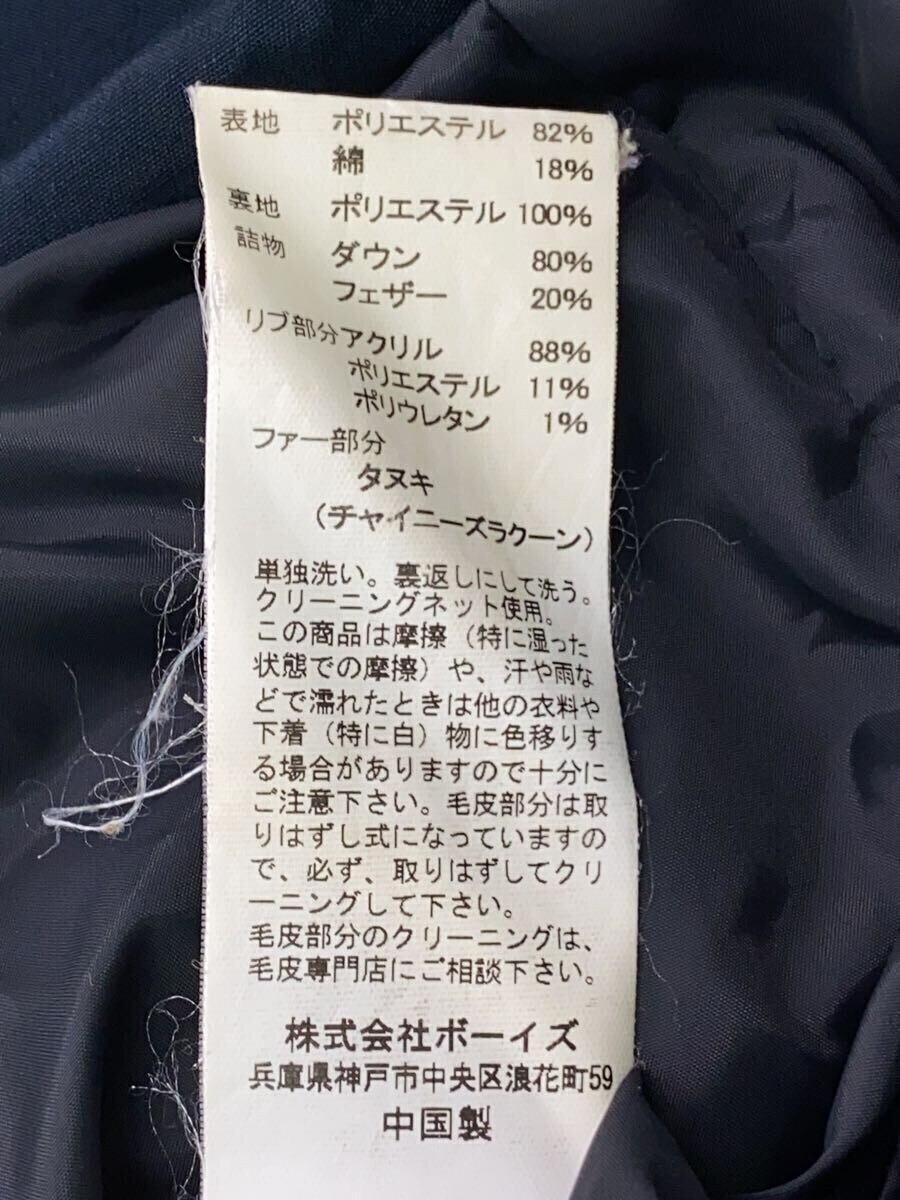 表地 ポリエステル 82%
綿 18%
裏地 ポリエステル 100%
詰物 ダウン 80%
フェザー 20%
リブ部分アクリル 88%
ポリエステル 11%
ポリウレタン 1%
ファー部分
タヌキ
（チャイニーズラクーン）
単独洗い。裏返しにして洗う。
クリーニングネット使用。
この商品は摩擦（特に湿った
状態での摩擦）や、汗や雨な
どで濡れたときは他の衣料や
下着（特に白）物に色移りす
る場合がありますので十分に
ご注意下さい。毛皮部分は取
りはずし式になっていますの
で、必ず、取りはずしてクリ
ーニングして下さい。
毛皮部分のクリーニングは、
毛皮専門店にご相談下さい。
株式会社ボーイズ
兵庫県神戸市中央区浪花町59
中国製